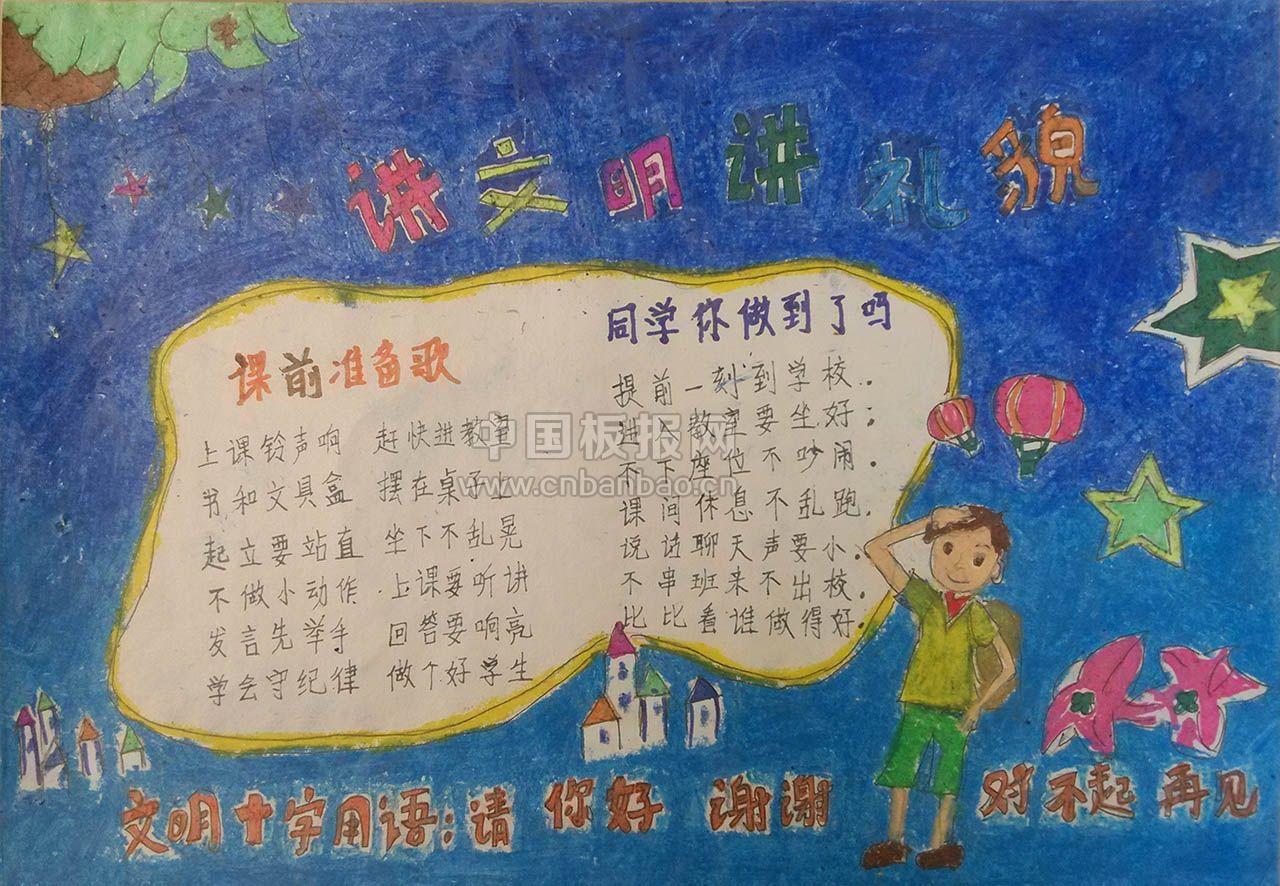 讲文明讲礼貌
课前准备歌
上课铃声响 赶快进教室
书和文具盒 摆在桌子上
起立要站直 坐下不乱晃
不做小动作 上课要听讲
发言先举手 回答要响亮
学会守纪律 做个好学生
同学你做到了吗
提前一刻到学校.
进入教室要坐好;
不下座位不吵闹.
课间休息不乱跑.
说话聊天声要小.
不串班来不出校.
比比看谁做得好.
中国板报网
www.cnbanbao.cn
文明十字用语:请 你好 谢谢 对不起 再见